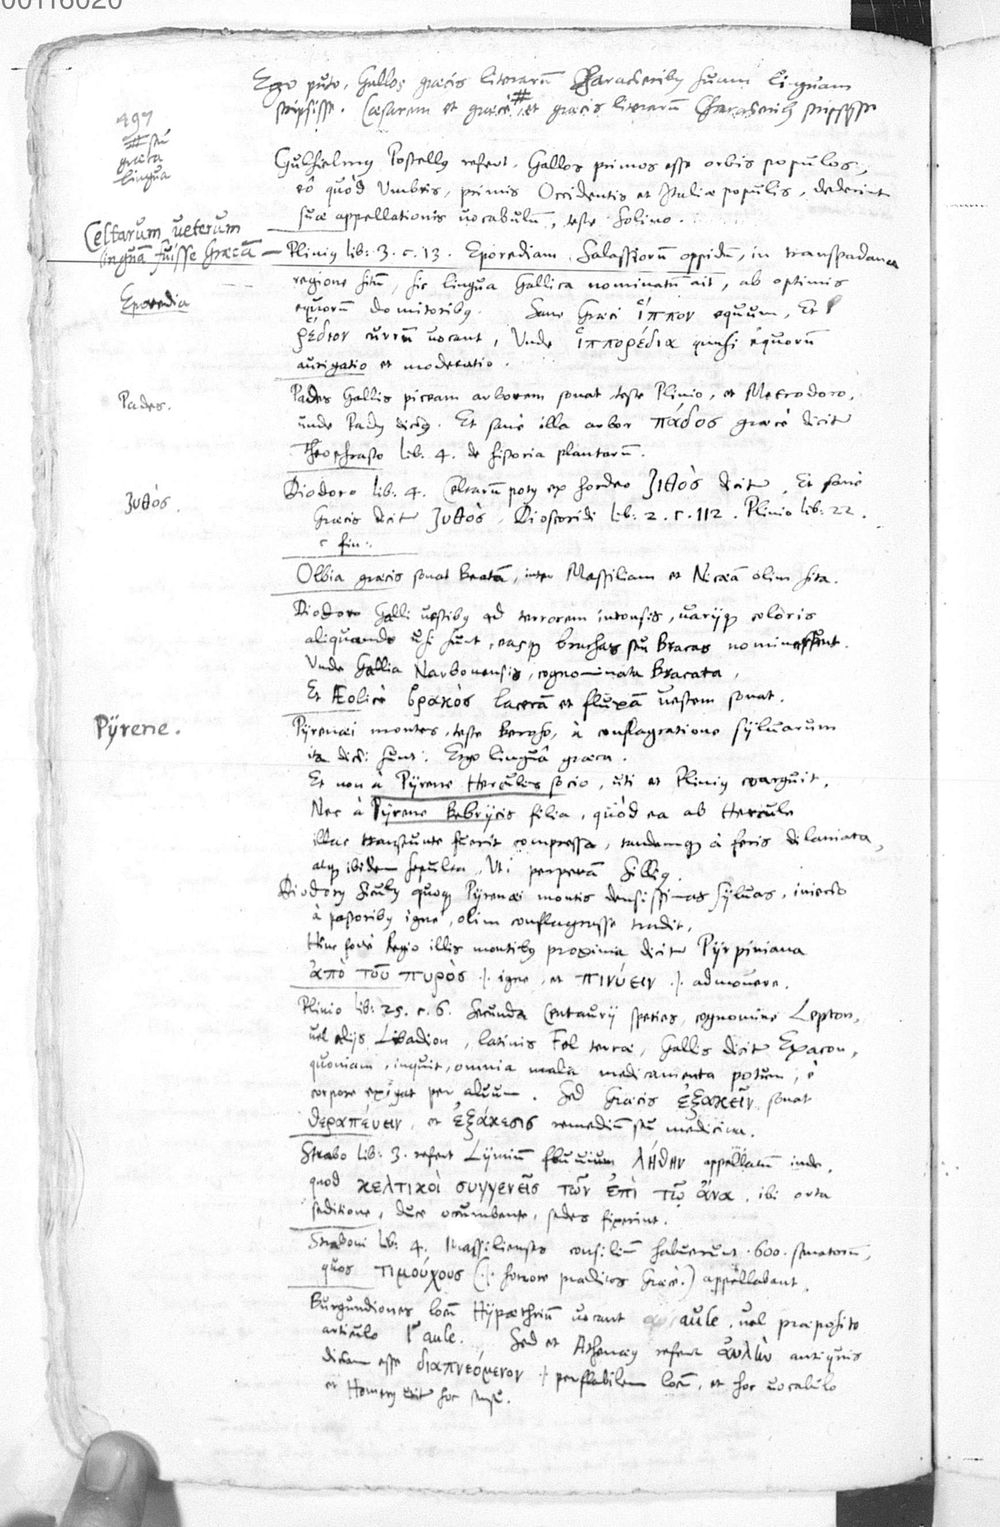 00116020
Ego puto, Gallos græcis literarũ Characteribus suam linguam
scripsisse. Cæsarem et græcè # et græcis literarũ Characterib. scripsisse
497
# seu
græca
lingua
Gulhielmus Postellus refert. Gallos primos esse orbis populos,
eô quòd Umbris, primis Occidentis et Italiæ populis, dederint
suæ appellationis vocabulũ, teste Solino.
Celtarum veterum
linguã fuisse Græcã
Plinius lib: 3. c. 13. Eporediam Salassiorũ oppidũ, in transpadana
regione sitũ, sic lingua Gallica nominatũ ait, ab optimis
Eporedia
equorũ domitoribus. Sane Græci ἵππον equum, Et
ῥέδιον currũ vocant, Unde ἱπποῤέδια quasi equorũ
aurigatio et moderatio.
Pades.
Pades Gallis piceam arborem sonat teste Plinio, et Metrodoro,
unde Padus dictus. Et sanè illa arbor πάδος græcè dicit
Theophrasto lib. 4. de historia plantarũ.
Diodoro lib. 4. Celtarũ potus ex hordeo ζιθὸς dicit, Et sanè
ζυθὸς.
Græcis dicit ζυθὸς. Dioscoridi lib: 2. c. 112. Plinio lib: 22.
c fin:.
Olbia græcis sonat Beatã, inter Massiliam et Nicæã olim sita.
Diodoro Galli vestibus ad terrorem intonsis, varijque coloris
aliquando usi sunt, easque brachas seu Bracas nominassent.
Unde Gallia Narbonensis, cognominata Bracata,
Et Æolicè βρακὸς lacerã et fluxã vestem sonat.
Pÿrene.
Pÿrenæi montes, teste Beroso, a conflagratione sÿlvarum
ita dicti sunt: Ergo linguâ græca.
Et non à Pÿrene Herculis socio, uti et Plinius coarguit,
Nec à Pÿrene Bebrÿcis filia, quòd ea ab Hercule
illac transeunte fuerit compressa, tandemque à feris dilaniata,
atque ibidem sepulta, Uti perperã Silius.
Diodorus Siculus quoque Pÿrenæi montis densissimas sÿlvas, iniecto
à pastoribus igne, olim conflagrasse tradit,
Hinc fortè Regio illis montibus proxima dicit Pÿrpiniana
ἀπὸ τοῦ πυρὸς .|. igne, et πινύειν .|. admovere.
Plinio lib: 25. c. 6. Secunda Centaurij species, cognomine Lepton,
vel alijs Libadion, latinis Fel terræ, Gallis dicit Exacon,
quoniam, inquit, omnia mala medicamenta potum, è
corpore exigat per alvum. Sed Græcis ἐξακεῖν sonat
θεραπέυειν, et ἐξάκεσις remediũ seu medicina.
Strabo lib: 3. refert Lÿmiũ fluvium λήθην appellatũ inde,
quod κελτικοὶ συγγενεῖς τῶν ἐπὶ τῷ ἄνα, ibi orta
seditione, duce occumbente, sedes fixerint.
Straboni lib: 4. Massilienses consiliũ habuerunt .600. senatorũ,
quos τιμούχους (.|. honore præditos Græcè.) appellabant.
Burgundiones locũ Hÿpæthriũ vocant aule, vel præposito
articulo l'aule. Sed et Athenæus refert ἀυλὴν antiquis
dictam esse διαπνεόμενον .|. perflabilem locũ, et hoc vocabulo
et Homerus utit hoc sensu.